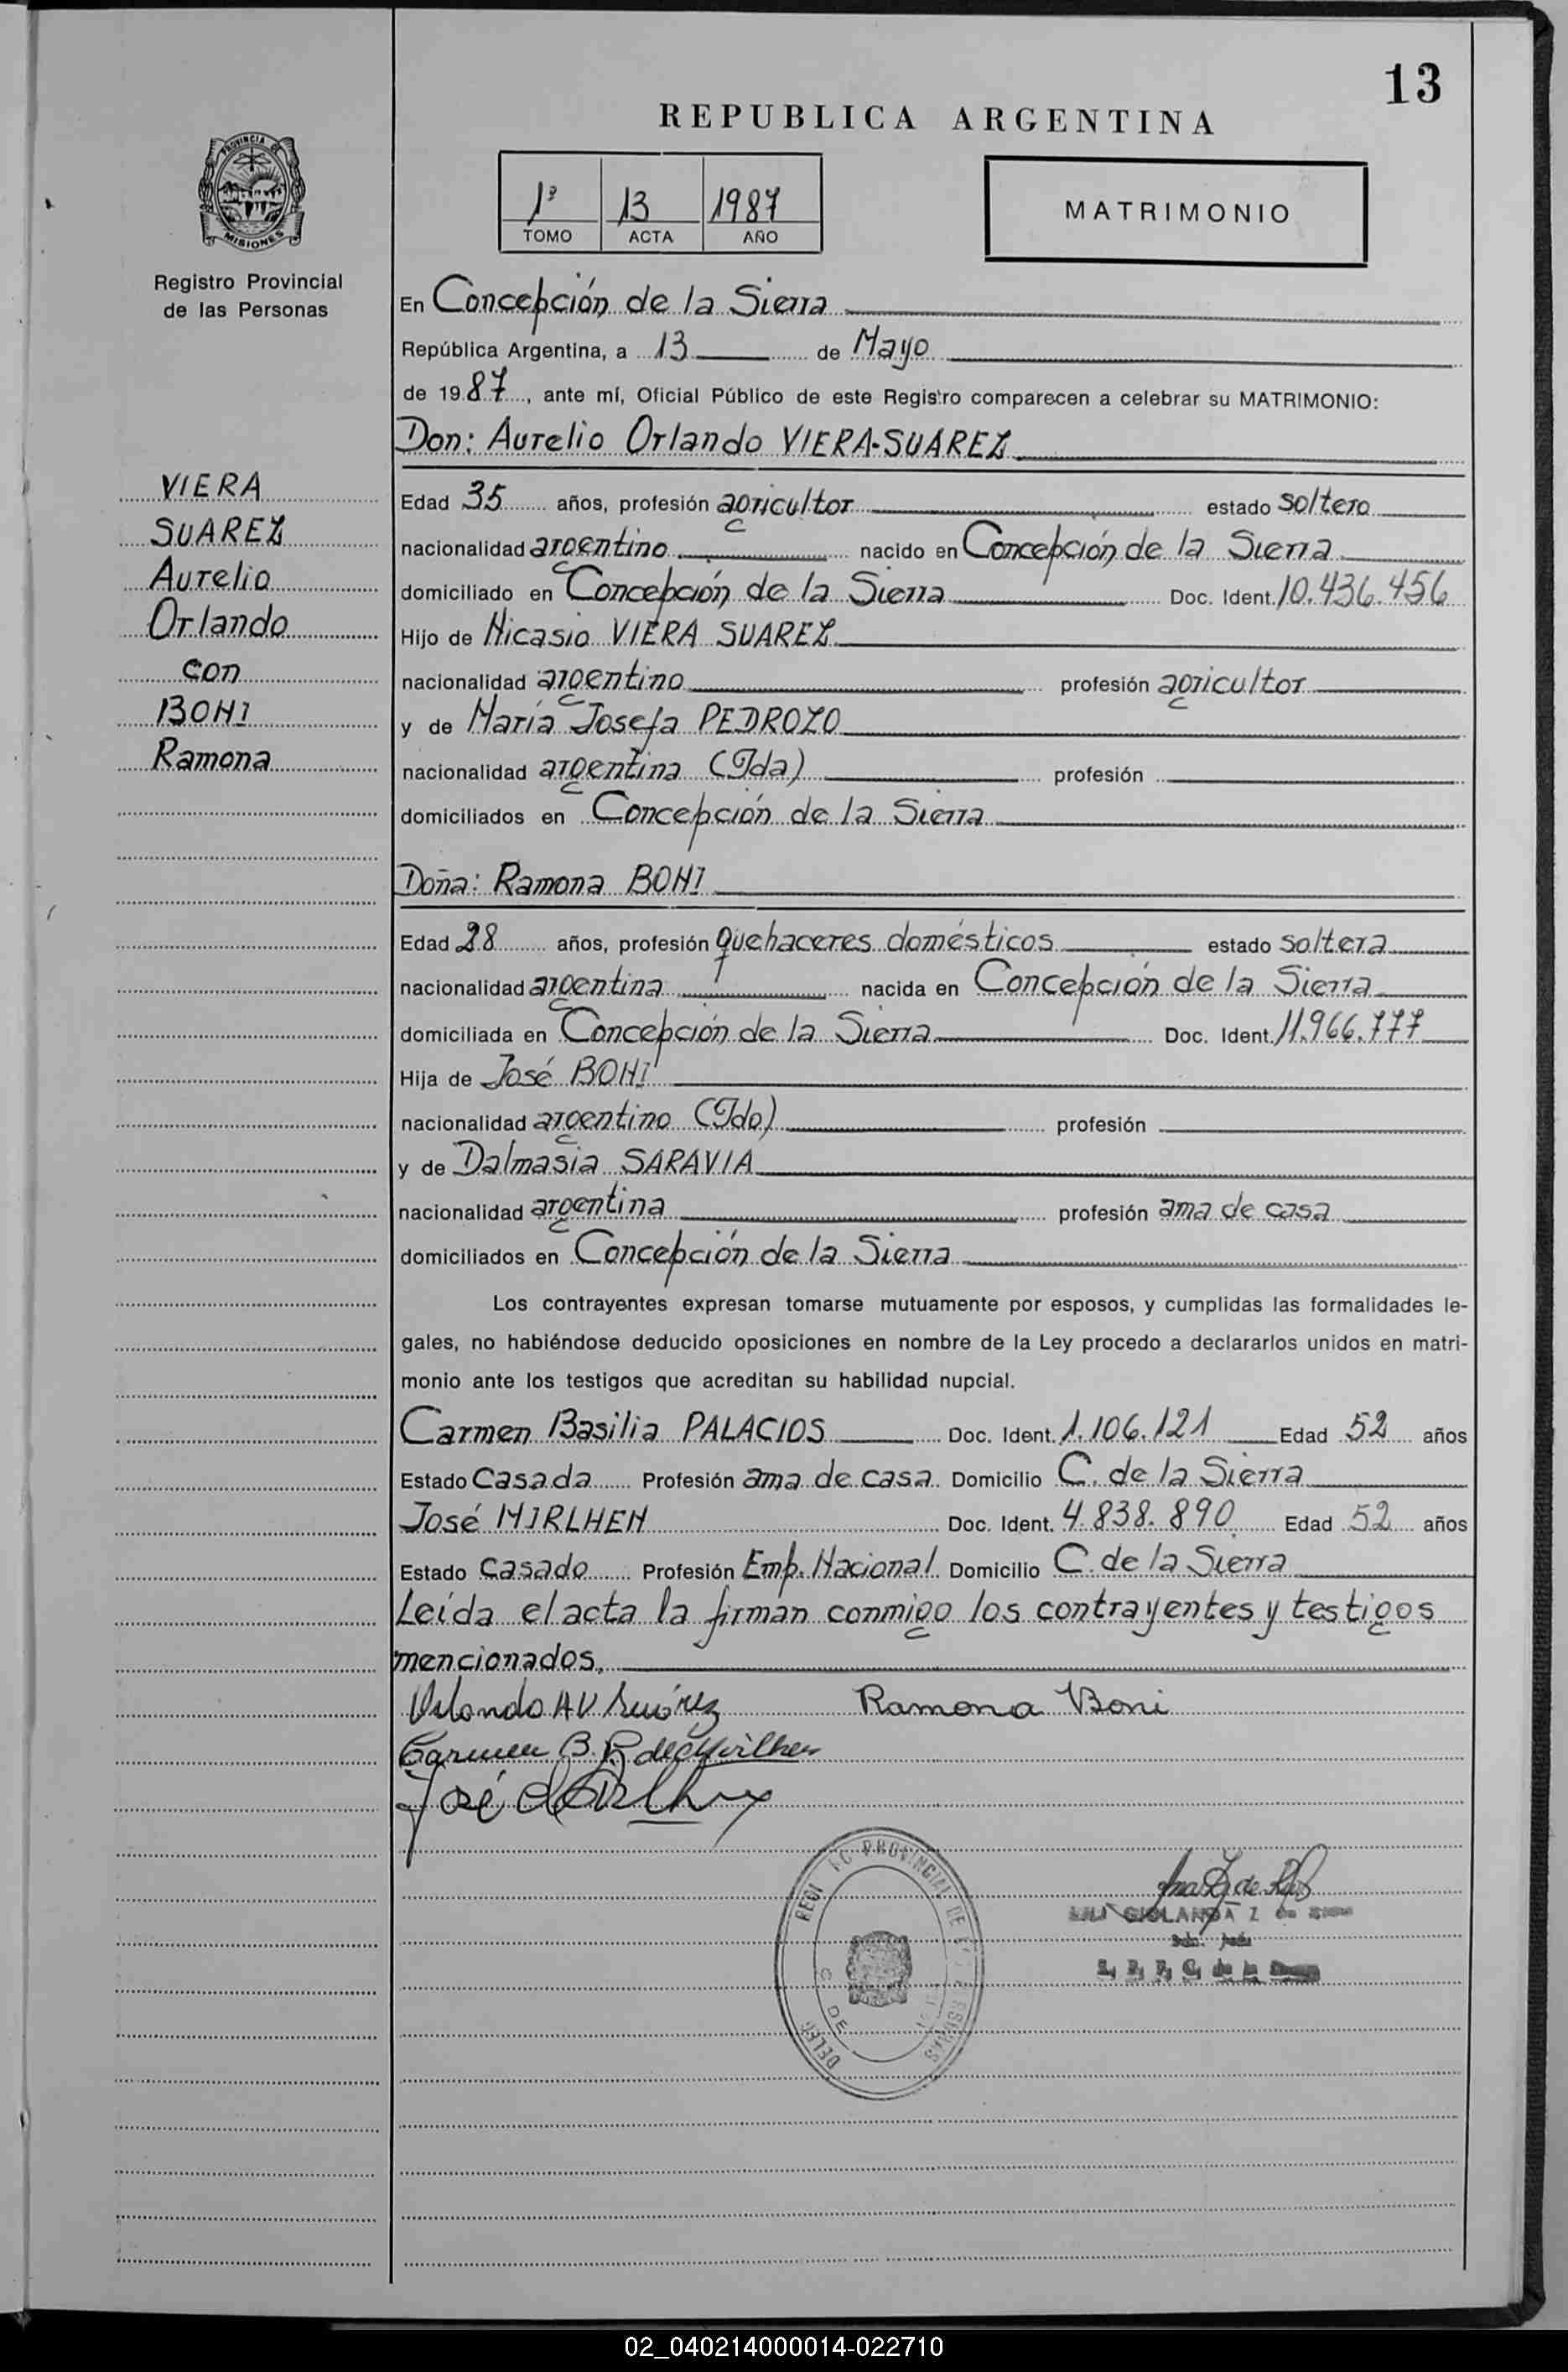 13
REPUBLICA ARGENTINA
1º 13 1987
TOMO ACTA AÑO
MATRIMONIO
PROVINCIA DE
MISIONES
Registro Provincial
de las Personas
En Concepción de la Sierra
República Argentina, a 13 de Mayo
de 1987, ante mí, Oficial Público de este Registro comparecen a celebrar su MATRIMONIO:
Don: Aurelio Orlando VIERA-SUAREZ
VIERA
SUAREZ
Aurelio
Orlando
con
BONI
Ramona
Edad 35 años, profesión agricultor estado soltero
nacionalidad argentino nacido en Concepción de la Sierra
domiciliado en Concepción de la Sierra Doc. Ident. 10.436.456
Hijo de Nicasio VIERA SUAREZ
nacionalidad argentino profesión agricultor
y de María Josefa PEDROZO
nacionalidad argentina (Fda) profesión
domiciliados en Concepción de la Sierra
Doña: Ramona BONI
Edad 28 años, profesión quehaceres domésticos estado soltera
nacionalidad argentina nacida en Concepción de la Sierra
domiciliada en Concepción de la Sierra Doc. Ident. 11.966.777
Hija de José BONI
nacionalidad argentino (Fdo) profesión
y de Dalmasia SARAVIA
nacionalidad argentina profesión ama de casa
domiciliados en Concepción de la Sierra
Los contrayentes expresan tomarse mutuamente por esposos, y cumplidas las formalidades le-
gales, no habiéndose deducido oposiciones en nombre de la Ley procedo a declararlos unidos en matri-
monio ante los testigos que acreditan su habilidad nupcial.
Carmen Basilia PALACIOS Doc. Ident. 1.106.121 Edad 52 años
Estado Casada Profesión ama de casa Domicilio C. de la Sierra
José MIRLHEN Doc. Ident. 4.838.890 Edad 52 años
Estado Casado Profesión Emp. Nacional Domicilio C. de la Sierra
Leída el acta la firman conmigo los contrayentes y testigos
mencionados.
Orlando A V Suárez Ramona Boni
Carmen B. P. de Mirlhen
José
PROVINCIAL DE
02_040214000014-022710